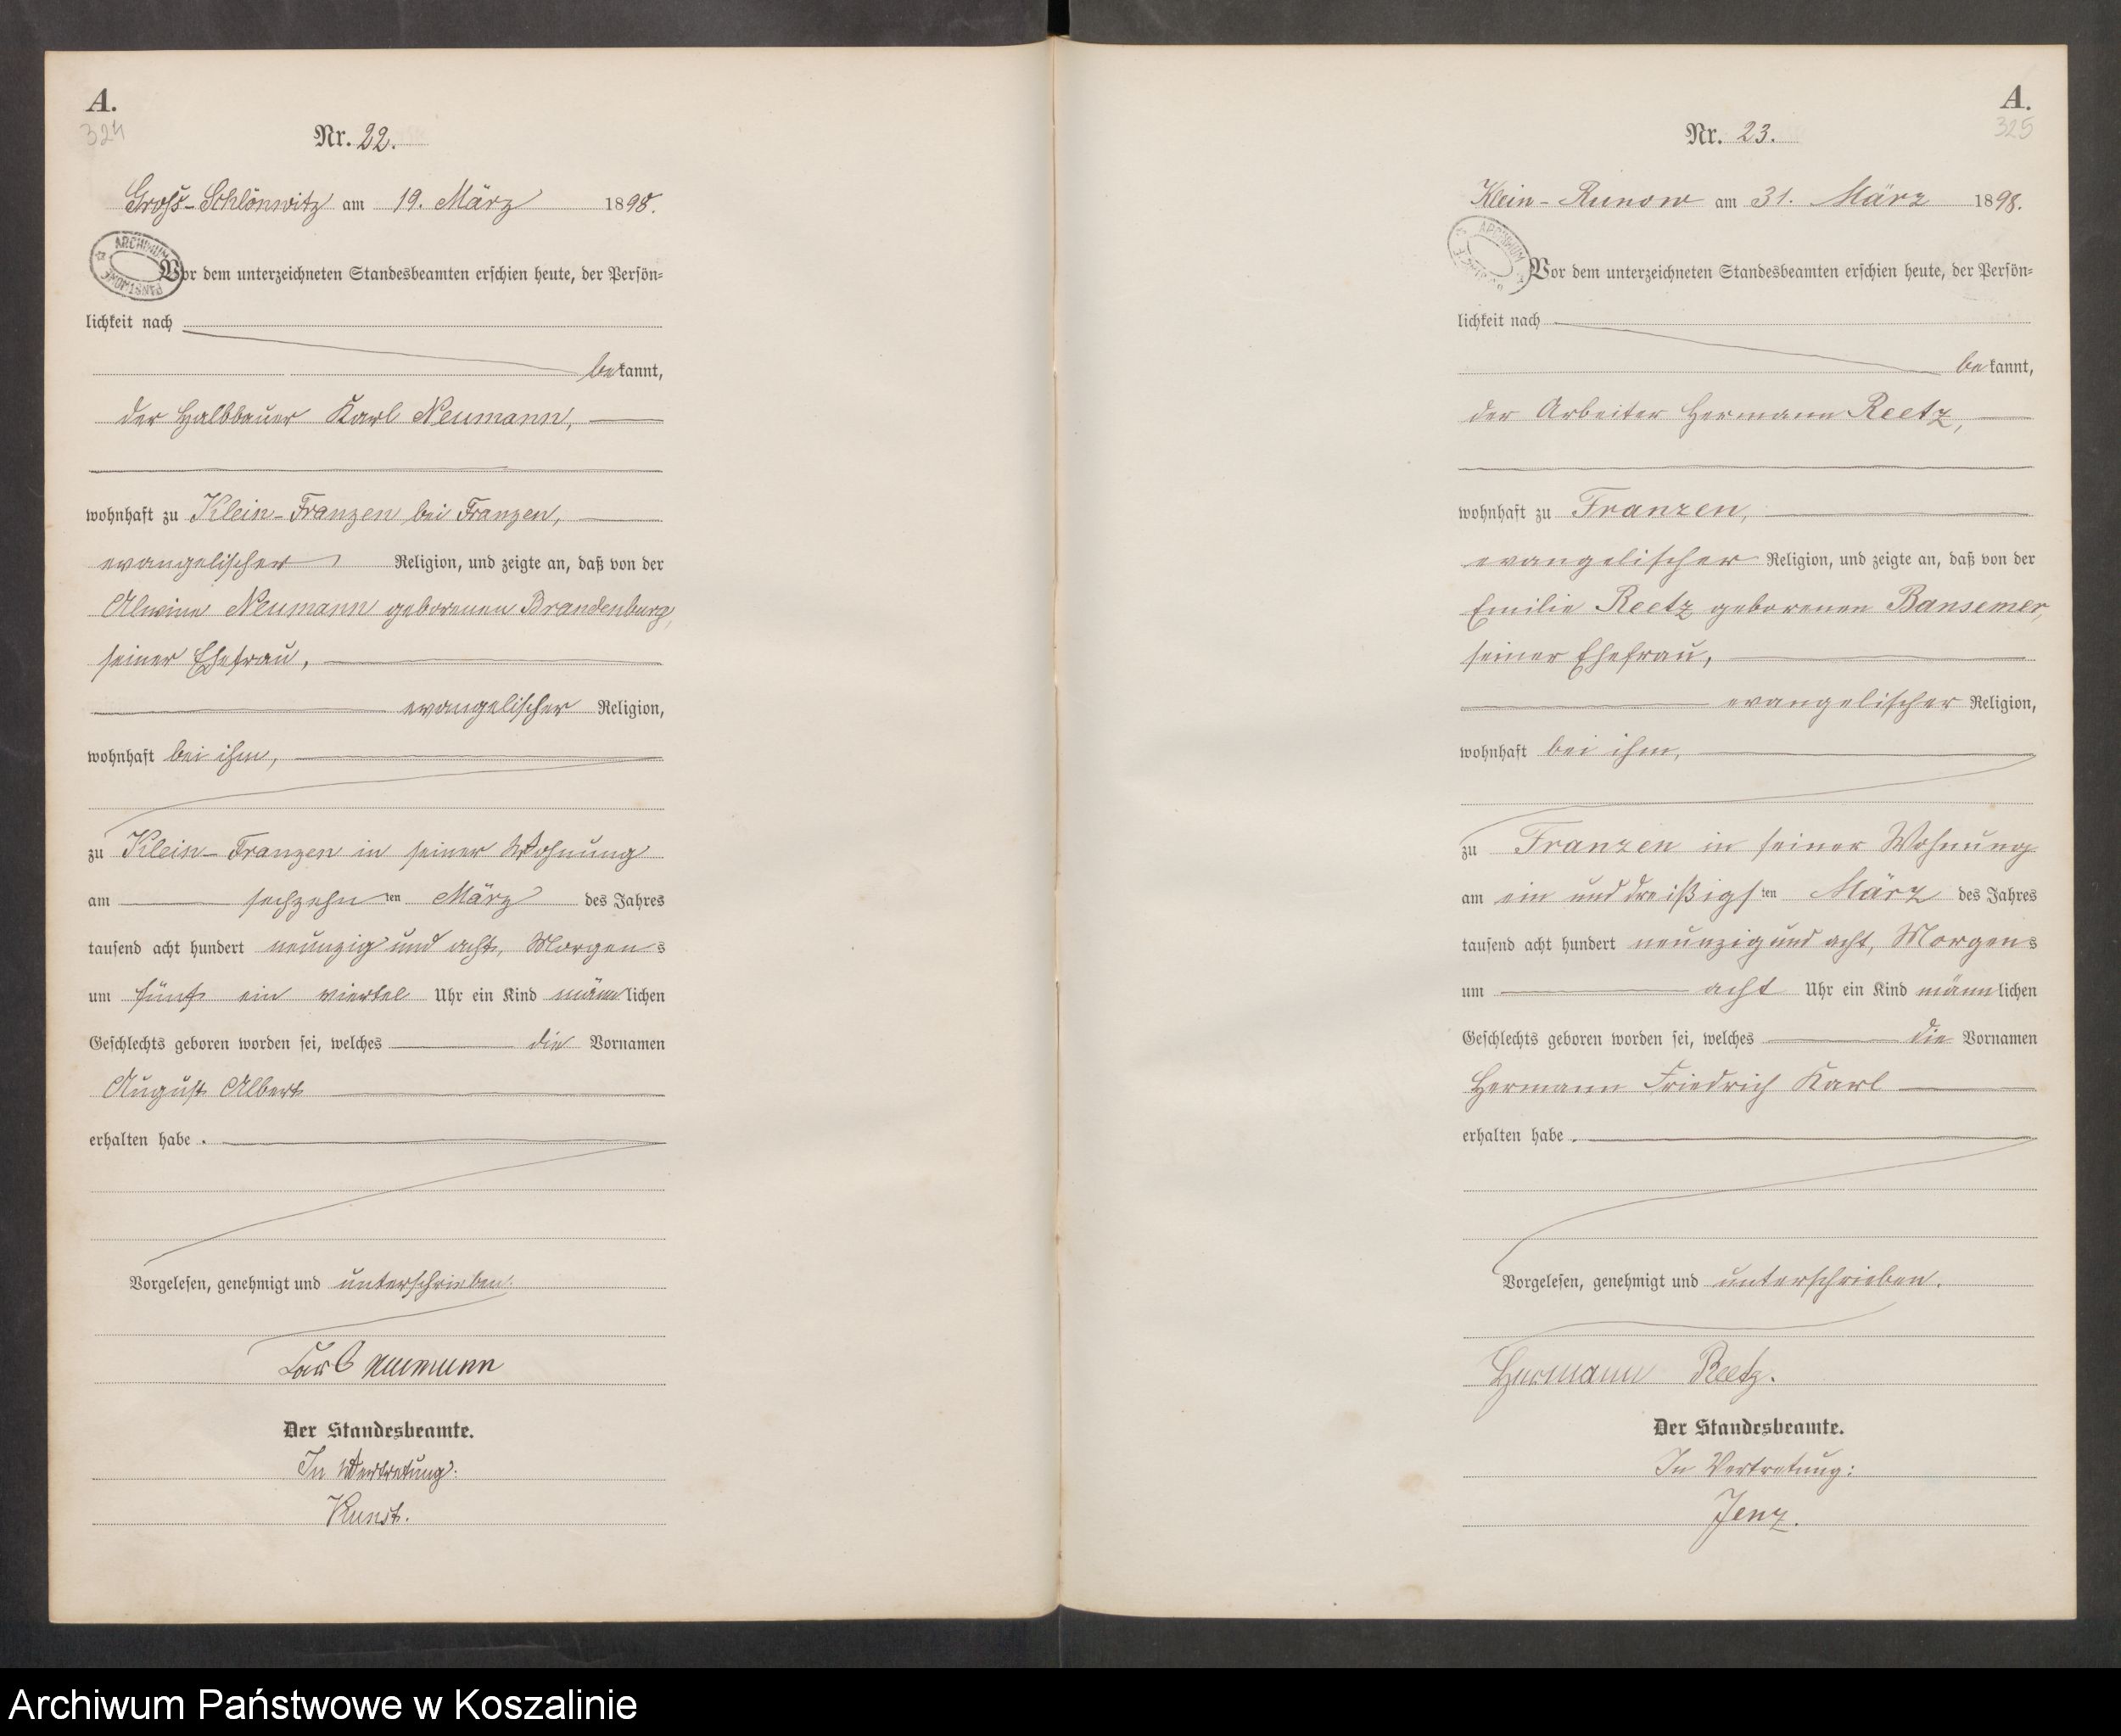 A.
324
Nr. 22.
Groß-Schlönwitz am 19. März 1898.
ARCHIWUM
PAŃSTWOWE
Vor dem unterzeichneten Standesbeamten erschien heute, der Persön=
lichkeit nach
bekannt,
der Halbbauer Karl Neumann,
wohnhaft zu Klein-Franzen bei Franzen,
evangelischer Religion, und zeigte an, daß von der
Alwine Neumann geborenen Brandenburg,
seiner Ehefrau,
evangelischer Religion,
wohnhaft bei ihm,
zu Klein-Franzen in seiner Wohnung
am sechzehnten März des Jahres
tausend acht hundert neunzig und acht, Morgens
um fünf ein viertel Uhr ein Kind männlichen
Geschlechts geboren worden sei, welches die Vornamen
August Albert
erhalten habe.
Vorgelesen, genehmigt und unterschrieben.
Carl Neumann
Der Standesbeamte.
In Vertretung:
Kunst.
A.
325
Nr. 23.
Klein-Runow am 31. März 1898.
ARCHIWUM
Vor dem unterzeichneten Standesbeamten erschien heute, der Persön=
lichkeit nach
bekannt,
der Arbeiter Hermann Reetz,
wohnhaft zu Franzen,
evangelischer Religion, und zeigte an, daß von der
Emilie Reetz geborenen Bansemer,
seiner Ehefrau,
evangelischer Religion,
wohnhaft bei ihm,
zu Franzen in seiner Wohnung
am ein und dreißigsten März des Jahres
tausend acht hundert neunzig und acht, Morgens
um acht Uhr ein Kind männlichen
Geschlechts geboren worden sei, welches die Vornamen
Hermann Friedrich Karl
erhalten habe.
Vorgelesen, genehmigt und unterschrieben.
Hermann Reetz.
Der Standesbeamte.
In Vertretung:
Jenz.
Archiwum Państwowe w Koszalinie